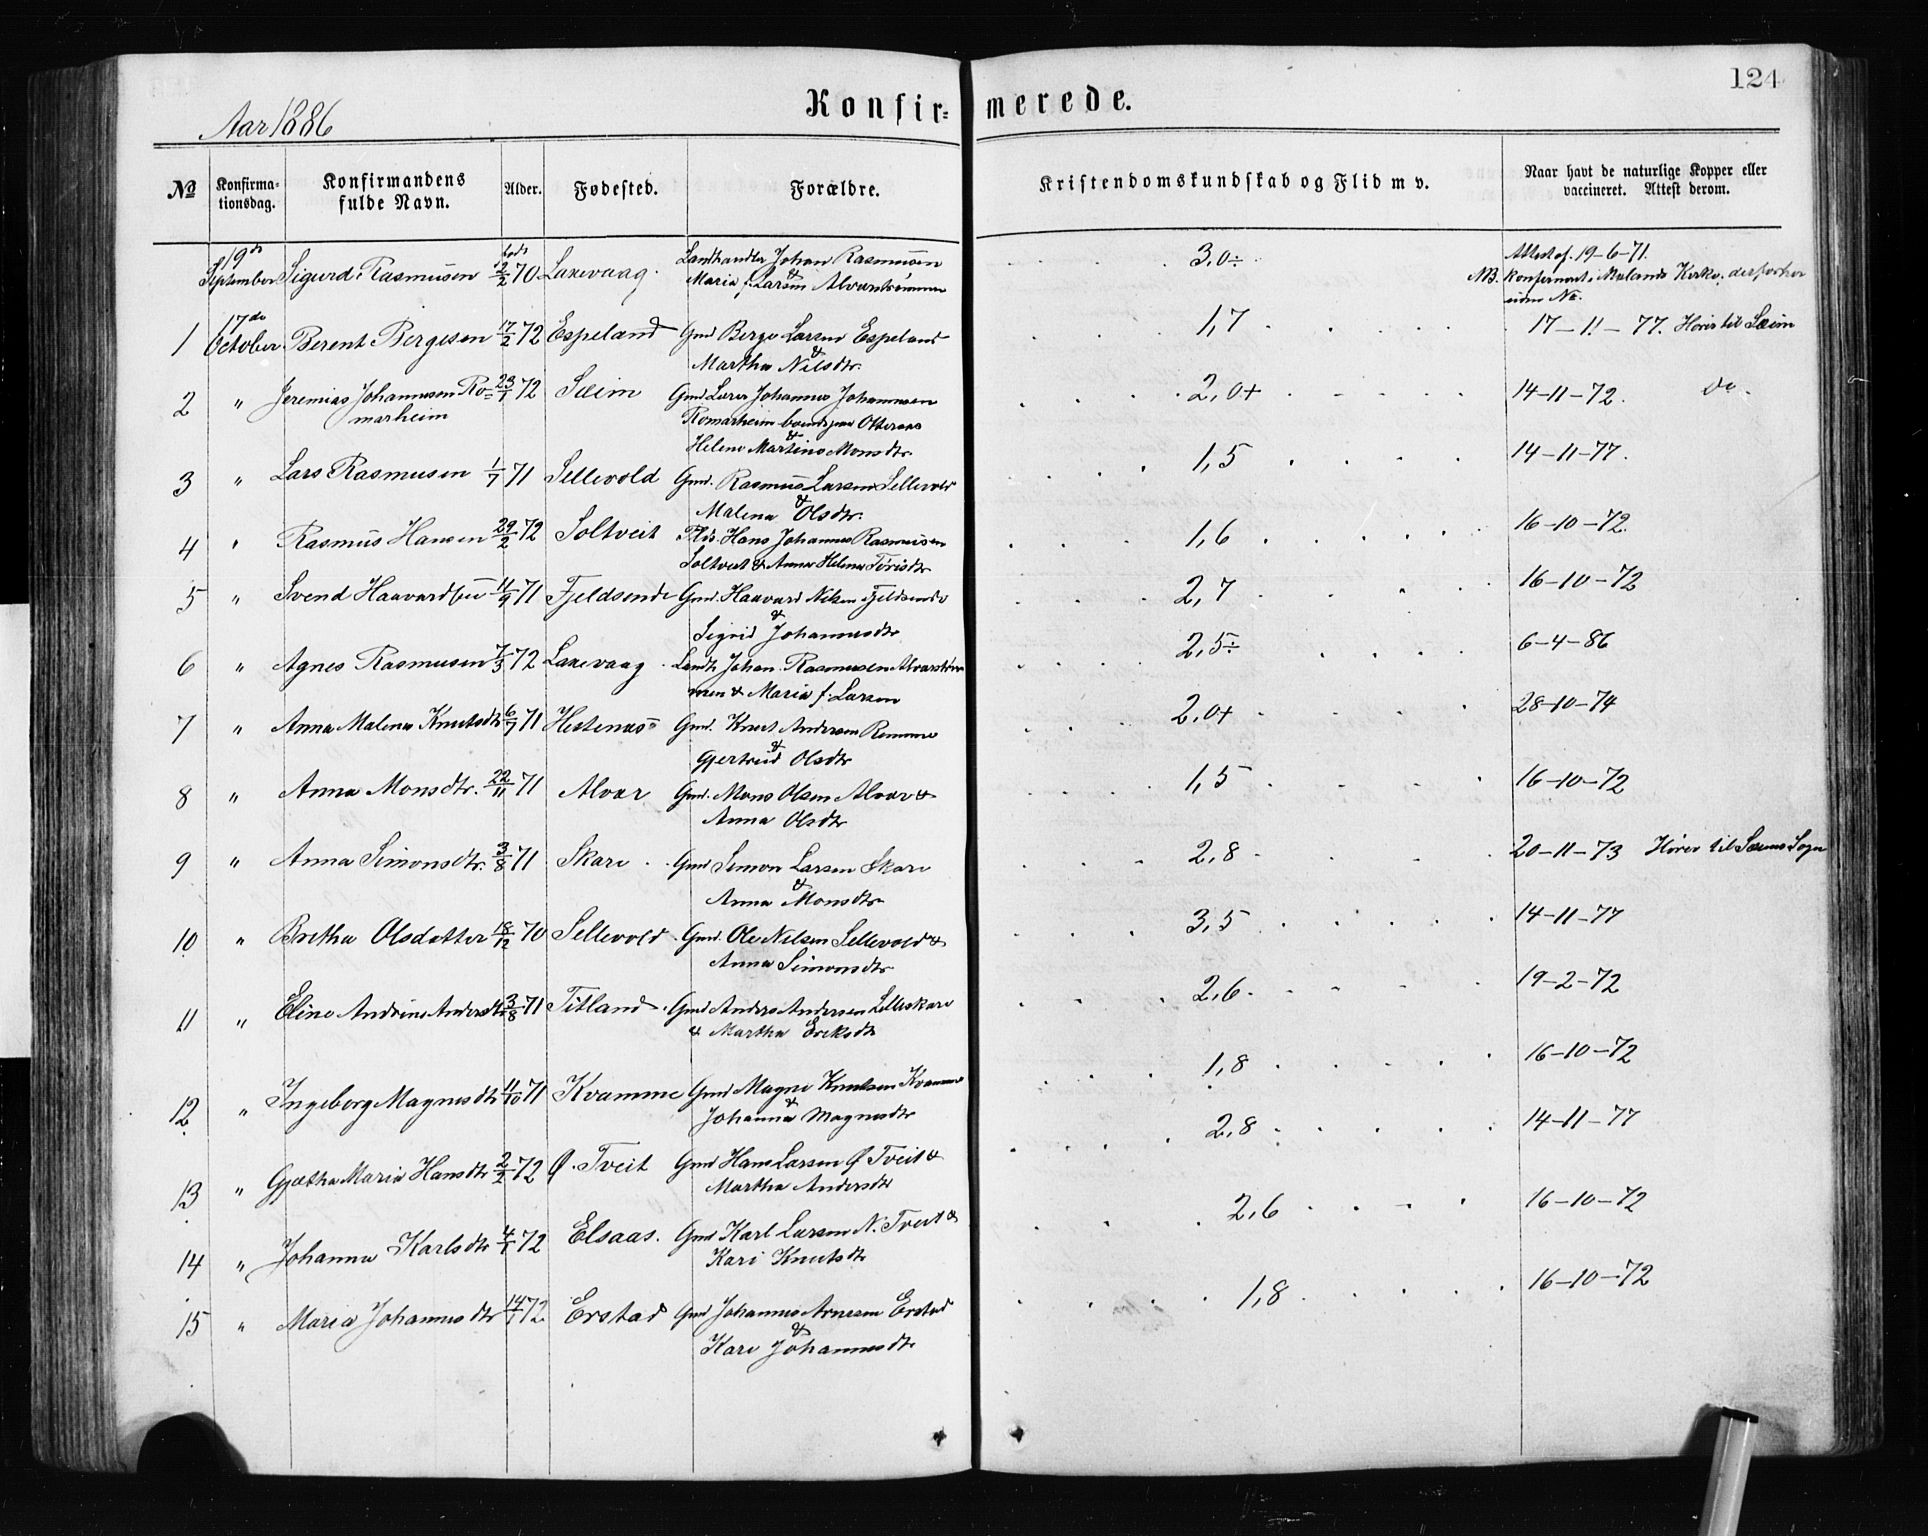 124
Konfir- merede.
Aar 1886
No Konfirma-tionsdag. Konfirmandens fulde Navn. Alder. Fødested. Forældre. Kristendomskundskab og Flid m v. Naar havt de naturlige Kopper eller vaccineret. Attest derom.
19de September Sigurd Rasmusen 2/2 70 Laxevaag. Landhandler Johan Rasmusen 3,0÷ Attest af. 19-6-71.
& Maria f. Larsen Alvarstrømmen NB. konfirmert i Mælands Kirke, derfor her
uden No.
1 17de October Berent Bergesen 17/2 72 Espeland Gmd Berge Larsen Espeland 1,7 17-11-77. Hører til Sæim
& Martha Nilsdtr.
2 " Jeremias Johannesen Ro- 23/1 72 Sæim Gmd Lærer Johannes Johannesen 2,0+ 14-11-72. do.
marheim Romarheim boende paa
& Helene Martine Monsdtr.
3 " Lars Rasmusen 1/7 71 Sellevold Gmd. Rasmus Larsen Sellevold 1,5 14-11-77.
& Malena Olsdtr.
4 " Rasmus Hansen 29/2 72 Soltveit Hans Johannes Rasmusen 1,6 16-10-72.
Soltveit & Anna Helena
5 " Svend Haavardsen 11/9 71 Fjeldsende Gmd. Haavard Nilsen Fjeldsende 2,7 16-10-72
& Sigrid Johannesdtr
6 " Agnes Rasmusen 7/3 72 Laxevaag. Landh. Johan Rasmusen Alvarstrøm 2,5÷ 6-4-86
men & Maria f. Larsen
7 " Anna Malena Knutsdtr 6/7 71 Hestenæs Gmd. Knut Andersen Remme 2,0+ 28-10-74
& Gjertrud Olsdtr
8 " Anna Monsdtr. 22/11 71 Alvær Gmd. Mons Olsen Alvær & 1,5 16-10-72
Anna Olsdtr
9 " Anna Simonsdtr. 3/8 71 Skare Gmd Simon Larsen Skare 2,8 20-11-73 Hører til Sæims Sogn
& Anna Monsdtr
10 " Bretha Olsdatter 18/12 70 Sellevold Gmd. Ole Nilsen Sellevold & 3,5 14-11-77
Anna Simonsdtr
11 " Eline Andrine Andersdtr 3/8 71 Titland Gmd Anders Andersen Lilleskare 2,6 19-2-72
& Martha Eriksdtr
12 " Ingeborg Magnesdtr 11/10 71 Kvamme Gmd Magne Knutsen Kvamme 1,8 16-10-72
& Johanna Magnesdtr
13 " Gjætha Maria Hansdtr 2/2 72 Ø. Tveit Gmd Hans Larsen Ø Tveit & 2,8 14-11-77
Martha Andersdtr
14 " Johanna Karlsdtr 4/1 72 Elsaas. Gmd Karl Larsen N. Tveit & 2,6 16-10-72
Kari Knutsdtr
15 " Maria Johannesdtr 14/1 72 Erstad Gmd Johannes Arnesen Erstad 1,8 16-10-72
& Kari Johannesdtr